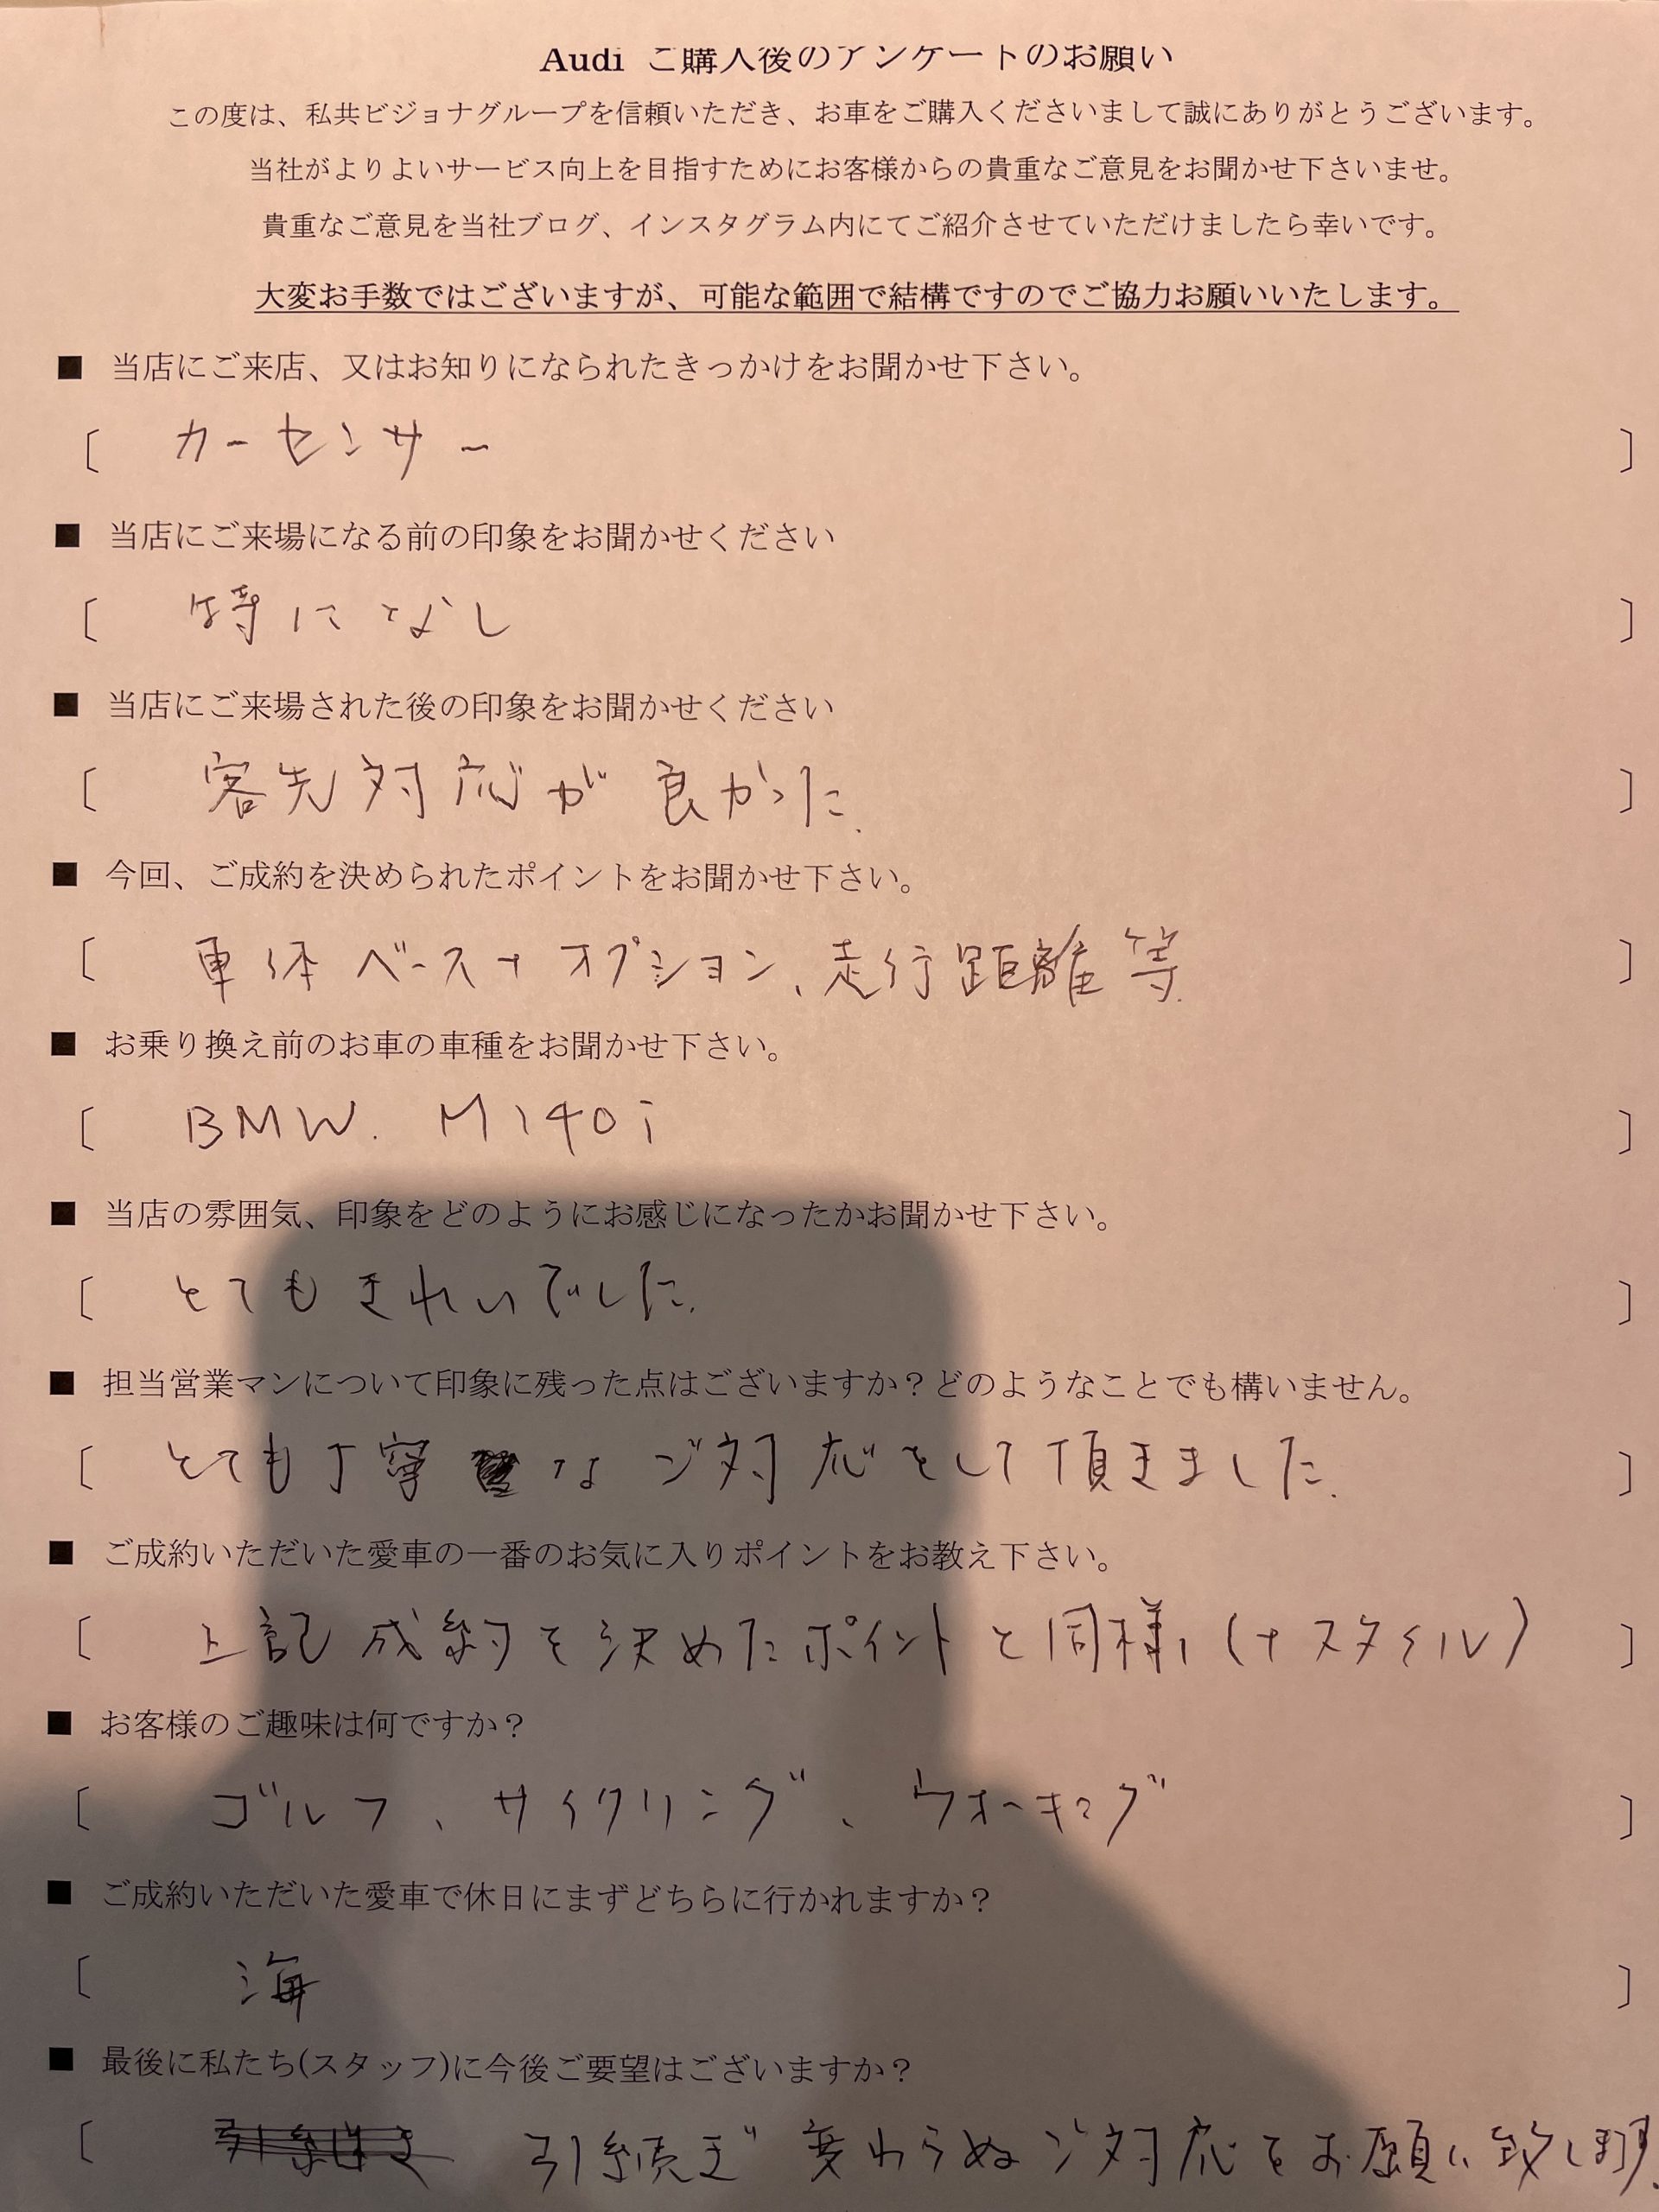 Audi ご購入後のアンケートのお願い
この度は、私共ビジョナグループを信頼いただき、お車をご購入くださいまして誠にありがとうございます。
当社がよりよいサービス向上を目指すためにお客様からの貴重なご意見をお聞かせ下さいませ。
貴重なご意見を当社ブログ、インスタグラム内にてご紹介させていただけましたら幸いです。
大変お手数ではございますが、可能な範囲で結構ですのでご協力お願いいたします。
■ 当店にご来店、又はお知りになられたきっかけをお聞かせ下さい。
〔 カーセンサー 〕
■ 当店にご来場になる前の印象をお聞かせください
〔 特になし 〕
■ 当店にご来場された後の印象をお聞かせください
〔 客先対応が良かった. 〕
■ 今回、ご成約を決められたポイントをお聞かせ下さい。
〔 車体ベース+オプション、走行距離等. 〕
■ お乗り換え前のお車の車種をお聞かせ下さい。
〔 BMW. M140i 〕
■ 当店の雰囲気、印象をどのようにお感じになったかお聞かせ下さい。
〔 とてもきれいでした. 〕
■ 担当営業マンについて印象に残った点はございますか？どのようなことでも構いません。
〔 とても丁寧なご対応をして頂きました. 〕
■ ご成約いただいた愛車の一番のお気に入りポイントをお教え下さい。
〔 上記成約を決めたポイントと同様,(+スタイル) 〕
■ お客様のご趣味は何ですか？
〔 ゴルフ、サイクリング、ウォーキング 〕
■ ご成約いただいた愛車で休日にまずどちらに行かれますか？
〔 海 〕
■ 最後に私たち(スタッフ)に今後ご要望はございますか？
〔 引続き変わらぬご対応をお願い致します.